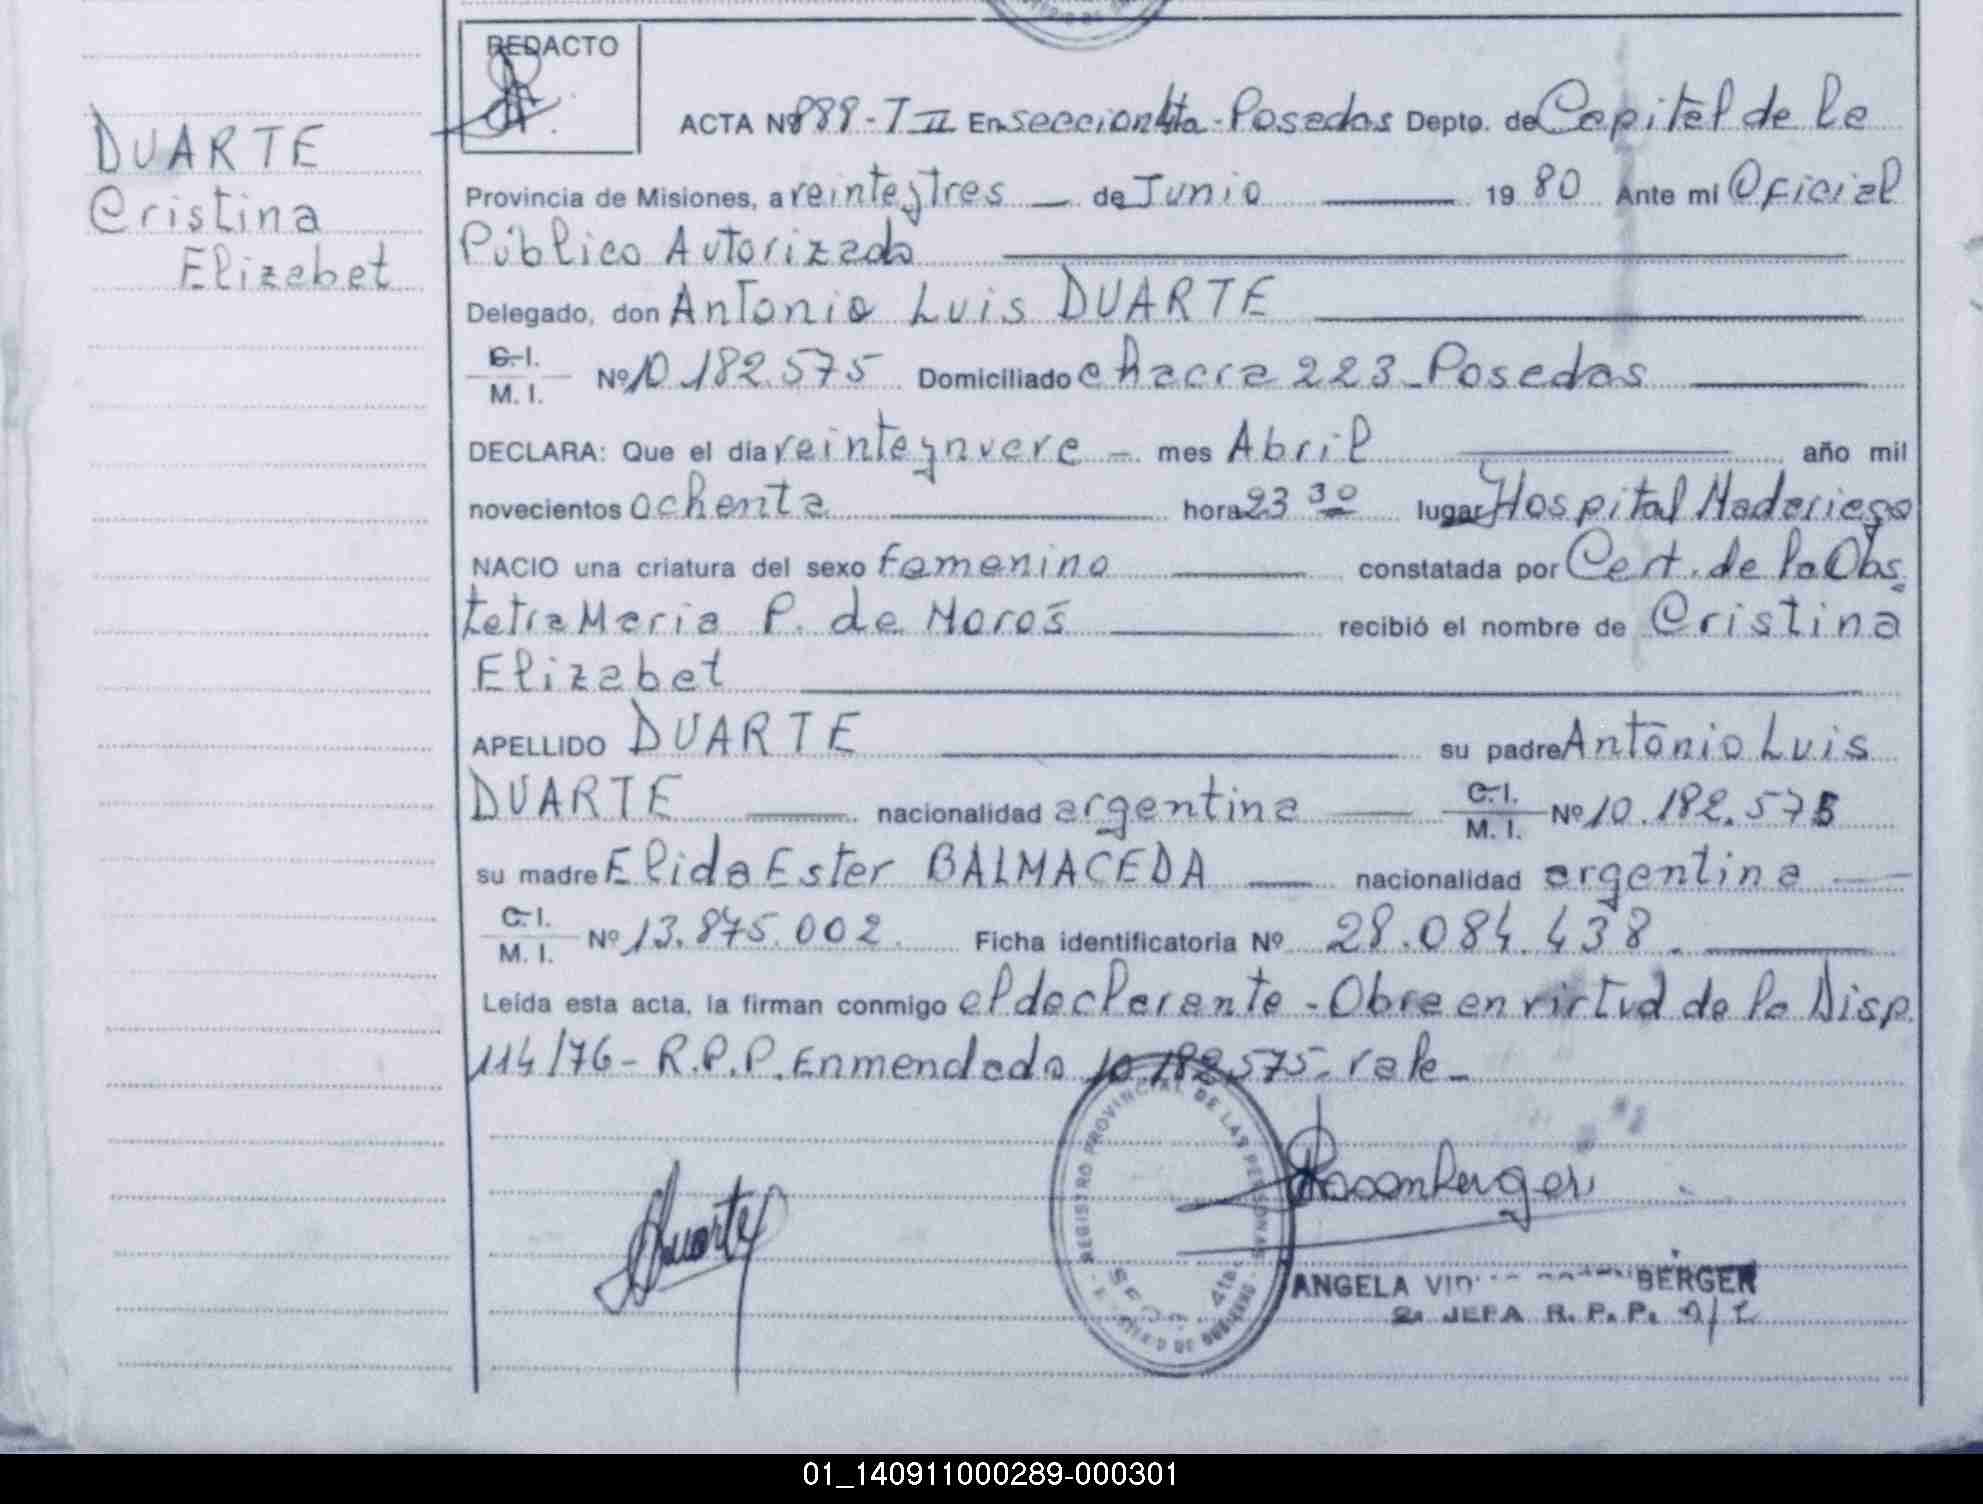 REDACTO
DUARTE
Cristina
Elizabet
ACTA Nº 888-T II En Seccion 4ta - Posadas Depto. de Capital de la
Provincia de Misiones, a veinteytres — de Junio 19 80 Ante mi Oficial
Público Autorizado
Delegado, don Antonio Luis DUARTE
C.I.
M. I. Nº 10.182.575 Domiciliado chacra 223 - Posadas
DECLARA: Que el día veinteynueve - mes Abril año mil
novecientos ochenta hora 23 30 lugar Hospital Madariaga
NACIO una criatura del sexo femenino constatada por Cert. de la Obs
tetra Maria P. de Moros recibió el nombre de Cristina
Elizabet
APELLIDO DUARTE su padre Antonio Luis
DUARTE nacionalidad argentina C.I.
M. I. Nº 10.182.575
su madre Elida Ester BALMACEDA nacionalidad argentina
C.I.
M. I. Nº 13.875.002. Ficha identificatoria Nº 28.084.438.
Leída esta acta, la firman conmigo el declarante - Obra en virtud de la Disp.
114/76 - R.P.P. Enmendado 10.182.575 - vale -
REGISTRO PROVINCIAL DE LAS PERSONAS
SECC. 4ta.
Duarte
Rosenberger
ANGELA BERGER
2a JEFA R. P. P.
01_140911000289-000301